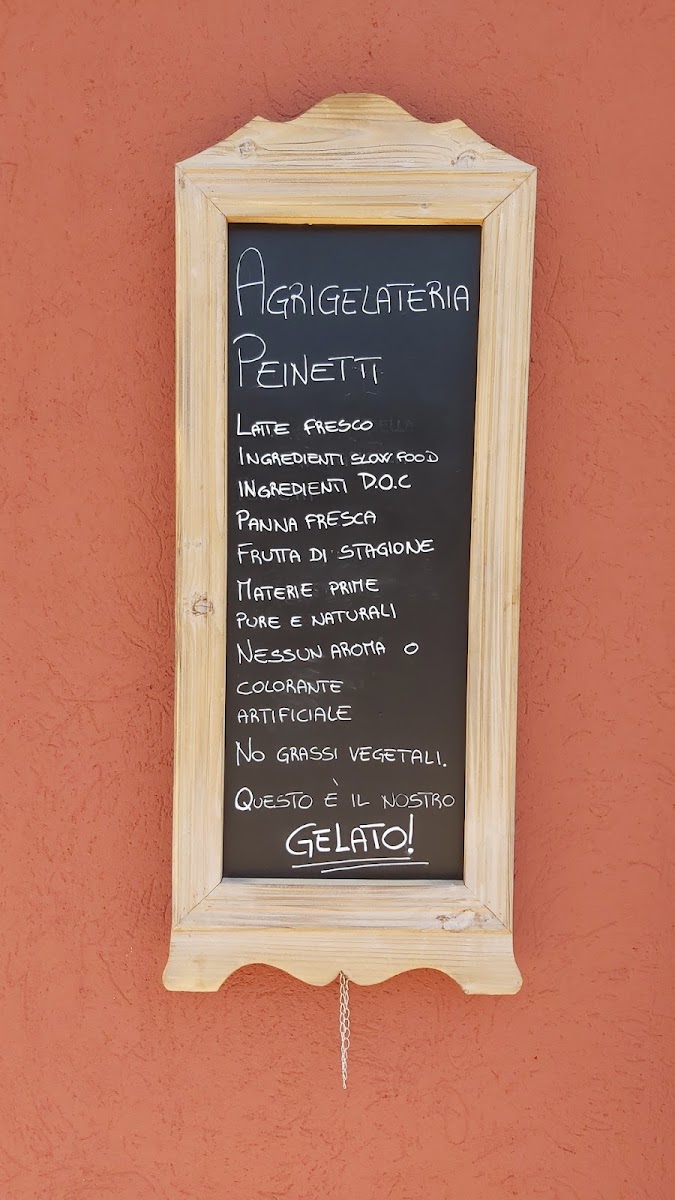 AGRIGELATERIA
PEINETTI
LATTE FRESCO
INGREDIENTI SLOW FOOD
INGREDIENTI D.O.C
PANNA FRESCA
FRUTTA DI STAGIONE
MATERIE PRIME
PURE E NATURALI
NESSUN AROMA O
COLORANTE
ARTIFICIALE
NO GRASSI VEGETALI.
QUESTO È IL NOSTRO
GELATO!